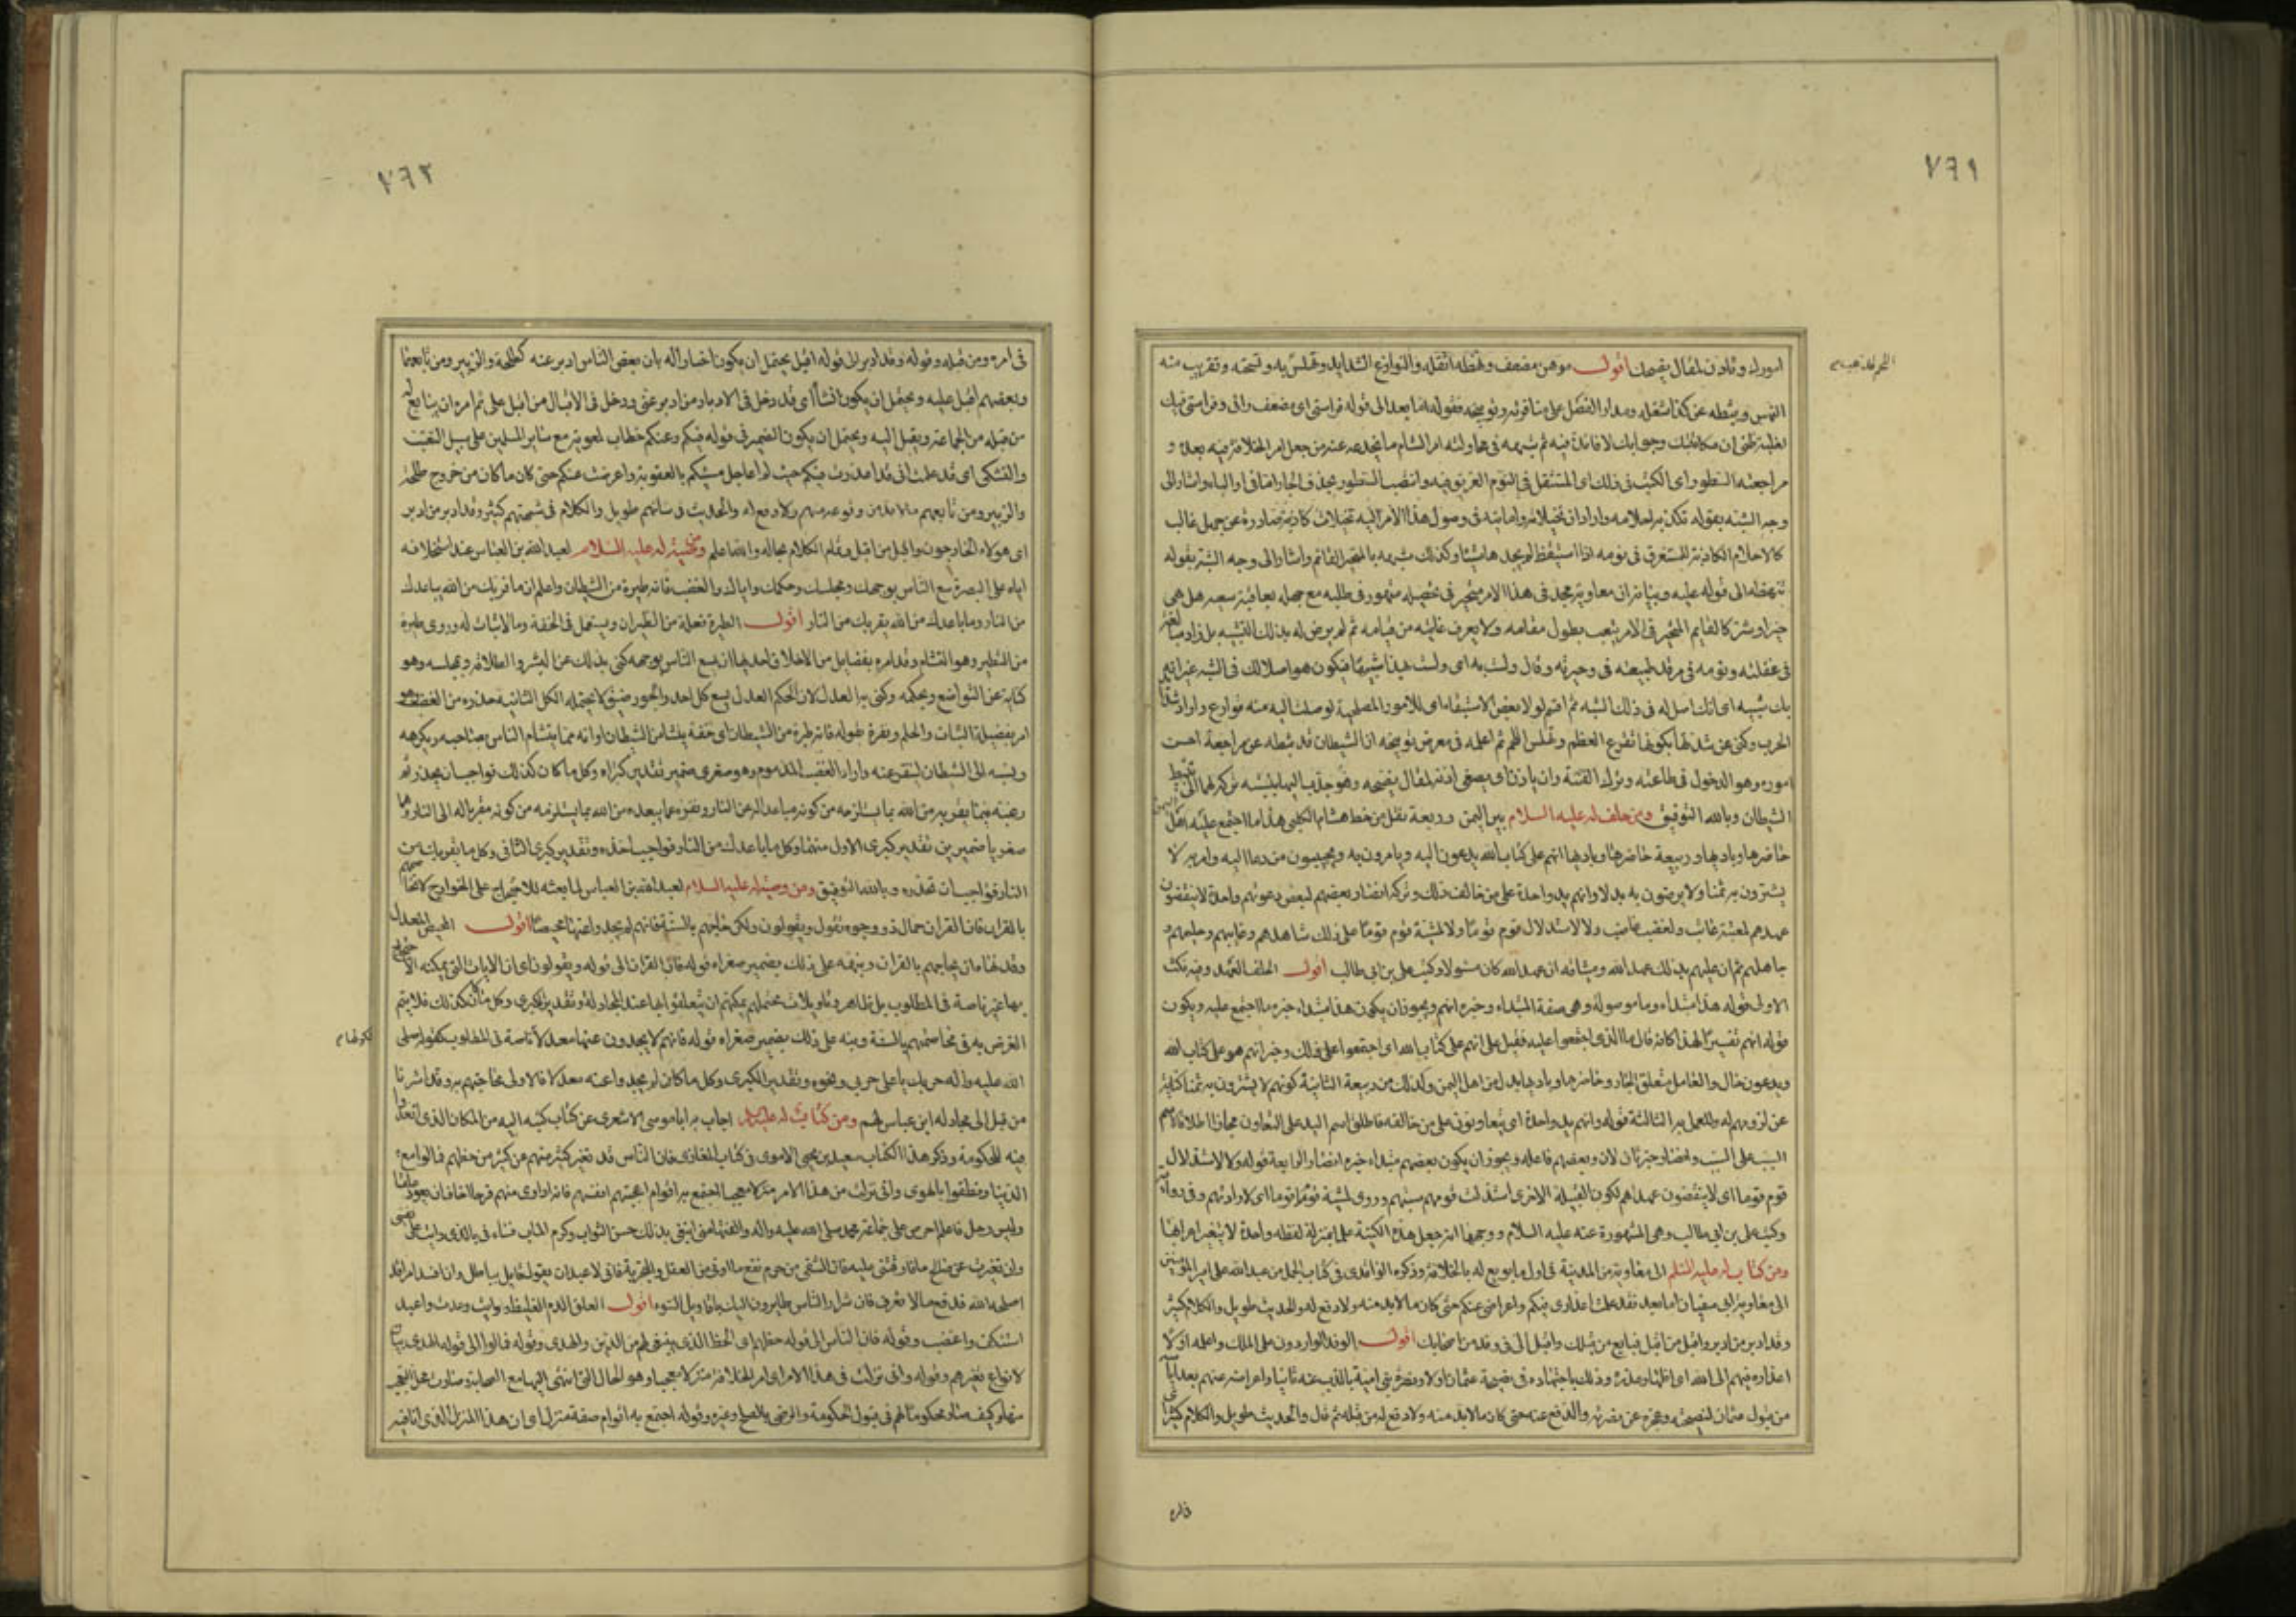 ٧٦١
امورك وتاذن لمقال نصيحتك اقول موهن مضعف ونهظه اثقله والقوارع الشدايد وتهلس يه وتسحته وتقريب منه
النهس وثبطه عن كذا شغله ومدار الفصل على مناقرته وتوبيخه فقوله اما بعد الى قوله فراستى اى مضعف رائى وفراستى فيك
لغلبة ظنى ان مكاتبتك وجوابك لا فائدة فيه ثم شبهه فى محاولته امر الشام ما يخدعه عنه من جعل امر الخلافة فيه بعده و
مراجعته السطور اى الكتب فى ذلك اى المستثقل فى النوم الغريق فيه وانتصب السطور بحذف الجار واشار الى
وجه الشبه بقوله تكذبه احلامه واراد ان تخيلاته وامانيه فى وصول هذا الامر اليه تخيلات كاذبة صادرة عن جهل غالب
كالاحلام الكاذبة للمستغرق فى نومه اذا استيقظ لم يجد هاشيئا وكذلك شبهه بالمتحير القائم واشار الى وجه الشبه بقوله
يبهظه الى قوله عليه وبيانه ان معاوية مجد فى هذا الامر متحير فى تحصيله متهور فى طلبه مع جهله بعاقبة سعيه هل هى
خير او شر كالقايم المتحير فى الامر يتعب بطول مقامه ولا يعرف غايته من قيامه ثم لم يرض له بذلك التشبيه بل زاد مبالغة
فى غفلته ونومه فى مرقد طبيعته فى وحيرته وقال ولست به اى ولست هذا شبيها فيكون هو اصلا لك فى الشبه غير انه
بك شبيه اى انك اصل له فى ذلك الشبه ثم اقسم لولا بعض الاستبقاء اى للامور المصلحية لوصلت اليه منه قوارع واراد شدائد
الحرب وكنى عن شدتها بكونها تقرع العظم وتهلس اللحم ثم اعلمه فى معرض توبيخه ان الشيطان قد ثبطه عن مراجعة احسن
اموره وهو الدخول فى طاعته وترك الفتنة وان ياذن اى يصغى اذنه لمقال نصيحته
الشيطان وبالله التوفيق ومن حلف له عليه السلام بين اليمن وربيعة نقل من خط هشام الكلبى هذا ما اجتمع عليه اهل
حاضرها وباديها وربيعة حاضرها وباديها انهم على كتاب الله يدعون اليه ويامرون به ويجيبون من دعا اليه وامر به لا
يشترون به ثمنا ولا يرضون به بدلا وانهم يد واحدة على من خالف ذلك وتركه انصار بعضهم لبعض دعوتهم واحدة لا ينقضون
عهدهم لمعتبة عاتب ولا لغضب غاضب ولا لاستذلال قوم قوما ولا لمسبة قوم قوما على ذلك شاهدهم وغايبهم وحليمهم و
جاهلهم ثم ان عليهم بذلك عهد الله وميثاقه ان عهد الله كان مسئولا وكتب على بن ابى طالب اقول الحلف العهد وفيه نكت
الاولى قوله هذا مبتداء وما موصولة وهى صفة المبتداء وخبره انهم ويجوز ان يكون هذا مبتداء خبره ما اجتمع عليه ويكون
قوله انهم تفسيرا لهذا كانه قال ما الذى اجتمعوا عليه فقيل على انهم على كتاب الله اى اجتمعوا على ذلك وخبر انهم هو على كتاب الله
ويدعون حال والعامل متعلق الجار وحاضرها وباديها بدل من اهل اليمن وكذلك من ربيعة الثانية كونهم لا يشترون به ثمنا كناية
عن لزومهم له والعمل به الثالثة قوله وانهم يد واحدة اى يتعاونون على من خالفه فاطلق اسم اليد على التعاون مجازا اطلاقا لاسم
السبب على المسبب وانصار خبر ثان لان وبعضهم فاعله ويجوز ان يكون بعضهم مبتداء خبره انصار الرابعة قوله ولا لاستذلال
قوم قوما اى لا ينقضون عهدهم لكون القبيلة الاخرى استذلت قومهم سبتهم وروى لمشية قوم قوما اى لارادتهم وفى رواية
وكتب على بن ابى طالب وهى المشهورة عنه عليه السلام ووجهها انه جعل هذه الكنية علما بمنزلة لفظه واحدة لا يتغير اعرابها
ومن كتاب له عليه السلم الى معاوية من المدينة فى اول ما بويع له بالخلافة وذكره الواقدى فى كتاب الجمل من عبد الله على امير المؤمنين
الى معاوية بن ابى سفيان اما بعد فقد علمت اعذارى فيكم واعراضى عنكم حتى كان ما لا بد منه ولا دفع له والحديث طويل والكلام كثير
وقد ادبر من ادبر واقبل من اقبل فبايع من قبلك واقبل الى فى وفد من اصحابك اقول الوفد الواردون على الملك واعلمه اولا
اعذاره فيهم الى الله اى اظهار عذره وذلك باجتهاده فى نصيحة عثمان اولا ونصرة بنى امية بالذب عنه ثانيا واعراضه عنهم بعد اياسه
من قبول عثمان لنصيحته وعجزه عن نصرته والدفع عنه حتى كان ما لا بد منه ولا دفع له من قتله ثم قال والحديث طويل والكلام كثير اى
فى امره
٧٦٢
فى امره ومن قبله وقوله وقد ادبر الى قوله اقبل يحتمل ان يكون اخبارا له بان بعض الناس ادبر عنه كطلحة والزبير ومن تابعهما
وبعضهم اقبل عليه ويحتمل ان يكون انشأ اى قد دخل فى الادبار من ادبر عنى ودخل فى الاقبال من اقبل على ثم امره ان يبايع له
من قبله من الجماعة ويقبل اليه ويحتمل ان يكون الضمير فى قوله فيكم وعنكم خطاب لمعوية مع ساير المسلمين على سبيل التعتب
والتشكى اى قد علمت انى قد اعذرت فيكم حيث لم اعاجل مسيئكم بالعقوبة واعرضت عنكم حتى كان ما كان من خروج طلحة
والزبير ومن تابعهم مما لا بد من وقوعه منهم ولا دفع له والحديث فى شانهم طويل والكلام فى شبهتهم كثير وقد ادبر من ادبر
اى هولاء الخارجون واقبل من اقبل وتمام الكلام بحاله والله اعلم ومن وصية له عليه السلام لعبد الله بن العباس عند استخلافه
اياه على البصرة سع الناس بوجهك ومجلسك وحكمك واياك والغضب فانه طيرة من الشيطان واعلم ان ما قربك من الله يباعدك
من النار وما باعدك من الله يقربك من النار اقول الطيرة فعلة من الطيران ويستعمل فى الخفة وما لا ثبات له وروى طيرة
من التطير وهو التشام وقد امره بفضايل من الاخلاق احدها ان يسع الناس بوجهه كنى بذلك عن البشر والطلاقة وبمجلسه وهو
كناية عن التواضع وبحكمه وكنى به العدل لان الحكم العدل يسع كل احد والجور ضيق لا يحتمله الكل الثانية حذره من الغضب وهو
امر بفضيلة الثبات والحلم ونفره بقوله فانه طيرة من الشيطان اى خفة ينشا من الشيطان او انه مما يتشام الناس بصاحبه ويكرهه
ونسبه الى الشيطان لينفر عنه واراد الغضب المذموم وهو صغرى ضمير تقدير كبراه وكل ما كان كذلك فواجب ان يحذر ثم
رغبه فيما يقربه من الله بما يستلزمه من كونه مباعدا له عن النار ونفره عما يبعده من الله بما يستلزمه من كونه مقربا له الى النار وهما
صغريا ضميرين تقدير كبرى الاول منهما وكل ما باعدك من النار فواجب اخذه وتقدير كبرى الثانى وكل ما يقربك من
النار فواجب ان تحذره وبالله التوفيق ومن وصية له عليه السلام لعبد الله بن العباس لما بعثه للاحتجاج على الخوارج لا تخاصمهم
بالقران فان القران حمال ذو وجوه تقول ويقولون ولكن حاجهم بالسنة فانهم لن يجدوا عنها محيصا اقول المحيص المعدل
وقد نهاه ان يحاجهم بالقران ونبهه على ذلك بضمير صغراه قوله فان القران الى قوله ويقولون اى ان الايات التى يمكنه الاحتجاج
بها غير ناصة فى المطلوب بل لها ظاهر وتاويلات محتملة يمكنهم ان يتعلقوا بها عند المجادلة وتقدير الكبرى وكل ما كان كذلك فلا يتم
الغرض به فى مخاصمتهم بالسنة ونبه على ذلك بضمير صغراه قوله فانهم لا يجدون عنها معدلا ناصة فى المطلوب كقوله صلى
الله عليه واله حربك يا على حربى ونحوه وتقدير الكبرى وكل ما كان لم يجدوا عنه معدلا فالاولى محاجتهم به وقد اشرنا
من قبل الى مجادلة ابن عباس لهم ومن كتاب له عليه السلام اجاب به ابا موسى الاشعرى عن كتاب كتبه اليه من المكان الذى اتعدوا
فيه للحكومة وذكر هذا الكتاب سعيد بن يحيى الاموى فى كتاب المغازى فان الناس قد تغير كثير منهم عن كثير من حظهم فمالوا مع
الدنيا ونطقوا بالهوى وانى نزلت من هذا الامر منزلا معجبا اجتمع به اقوام اعجبتهم انفسهم فانى اداوى منهم قرحا اخاف ان يعود علقا
وليس رجل فاعلم احرص على جماعة محمد صلى الله عليه واله والفتها منى ابتغى بذلك حسن الثواب وكرم الماب فساء فى بالذى وايت على نفسى
وان تغيرت عن صالح ما فارقتنى عليه فان الشقى من حرم نفع ما اوتى من العقل والتجربة فانى لاعبد ان يقول قايل بباطل وان افسد امرا قد
اصلحه الله فدع ما لا تعرف فان شرار الناس طايرون اليك باقاويل السوء اقول العلق الدم الغليظ ووايت وعدت واعبد
استنكف واغضب وقوله فان الناس الى قوله حظهم اى الحظ الذى ينبغى لهم من الدين والهدى وقوله فمالوا الى قوله الهوى بيان
لانواع تغيرهم وقوله وانى نزلت فى هذا الامر اى امر الخلافة منزلا معجبا وهو الحال التى انتهى اليها مع الصحابة وصارت محل التعجب
منها وكيف صار محكوما لهم فى قبول الحكومة والرضى بالصلح وغيره وقوله اجتمع به اقوام صفة منزلا اى ان هذا المنزل الذى انا فيه